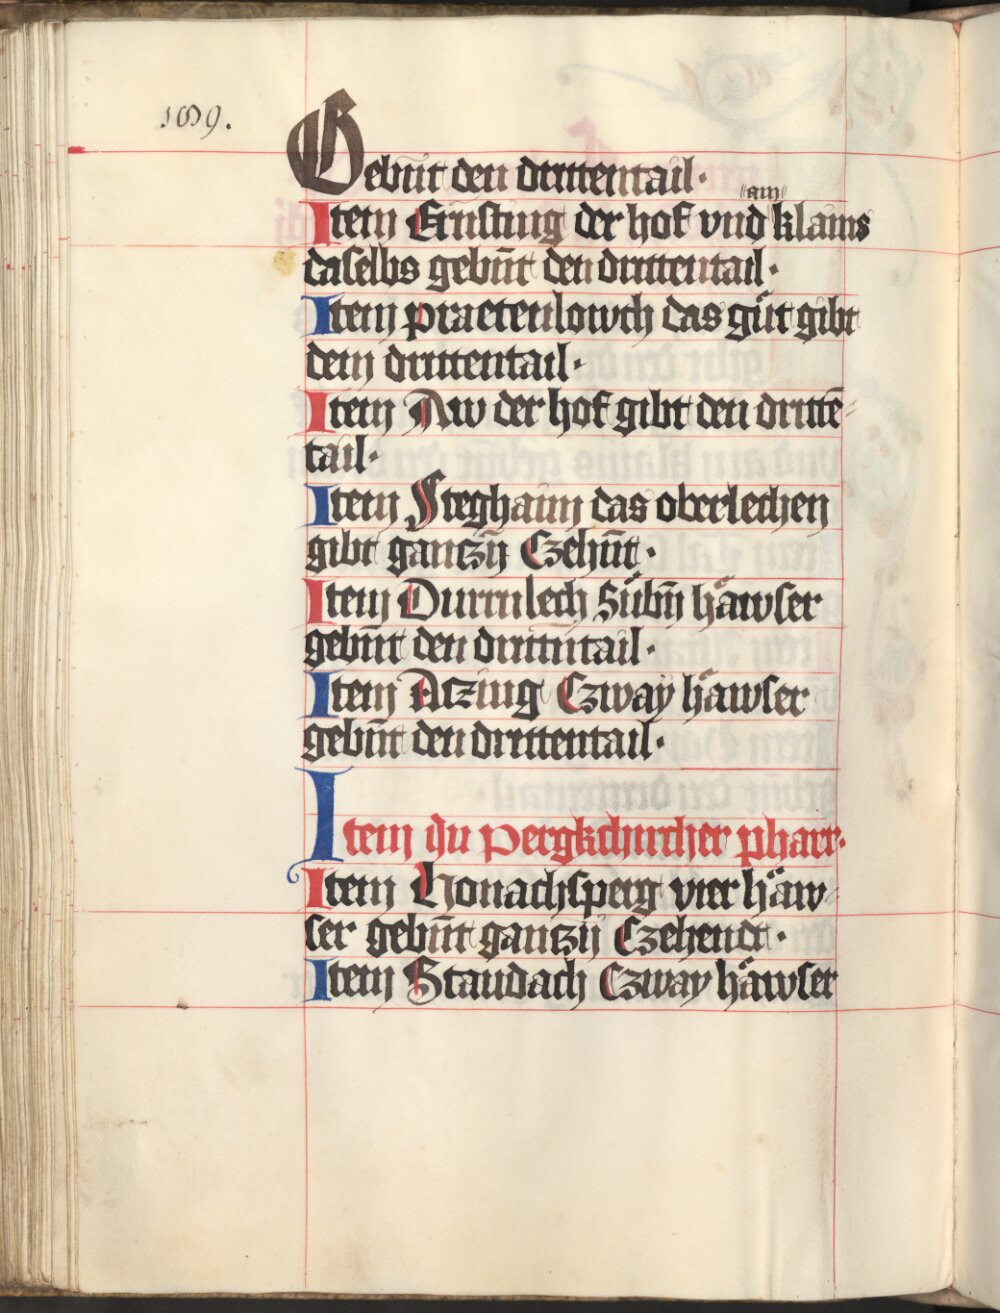 1609.
Gebn̄t den drittentail·
Item Ernsting der hof vnd "ain" klains
daselbs gebn̄t den drittentail·
Item praetenlowch das gůt gibt
dem drittentail·
Item Aw der hof gibt den drittē-
tail·
Item Steghaim das oberlechen
gibt gantzn̄ Czehn̄t·
Item Durrnlech Sübn̄ häwser
gebn̄t den drittntail·
Item Atzing Czway häwser
gebn̄t den drittentail·
Item Jn Pergkchircher pharr·
Item Honachsperg vier häw-
ser gebn̄t gantzn̄ Czehendt·
Item Staudach Czway häwser